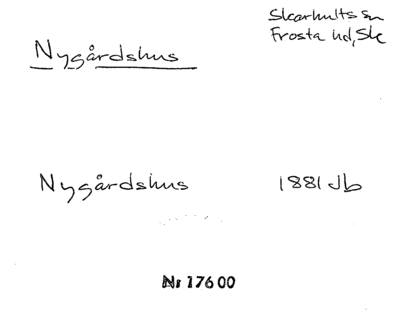 Skarhults sn
Frosta hd, Sk
Nygårdshus
Nygårdshus 1881 Jb
Nr 17600